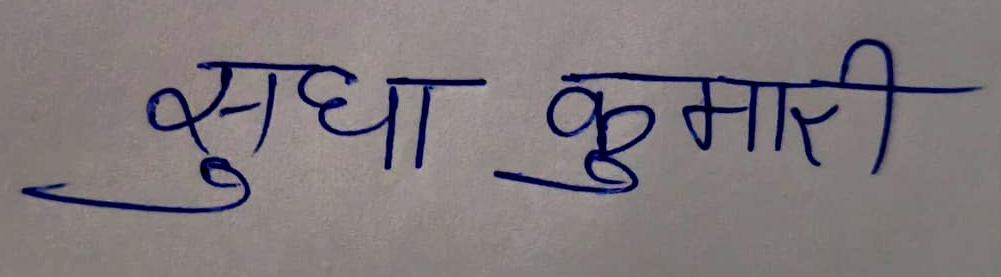 सुधा कुमारी